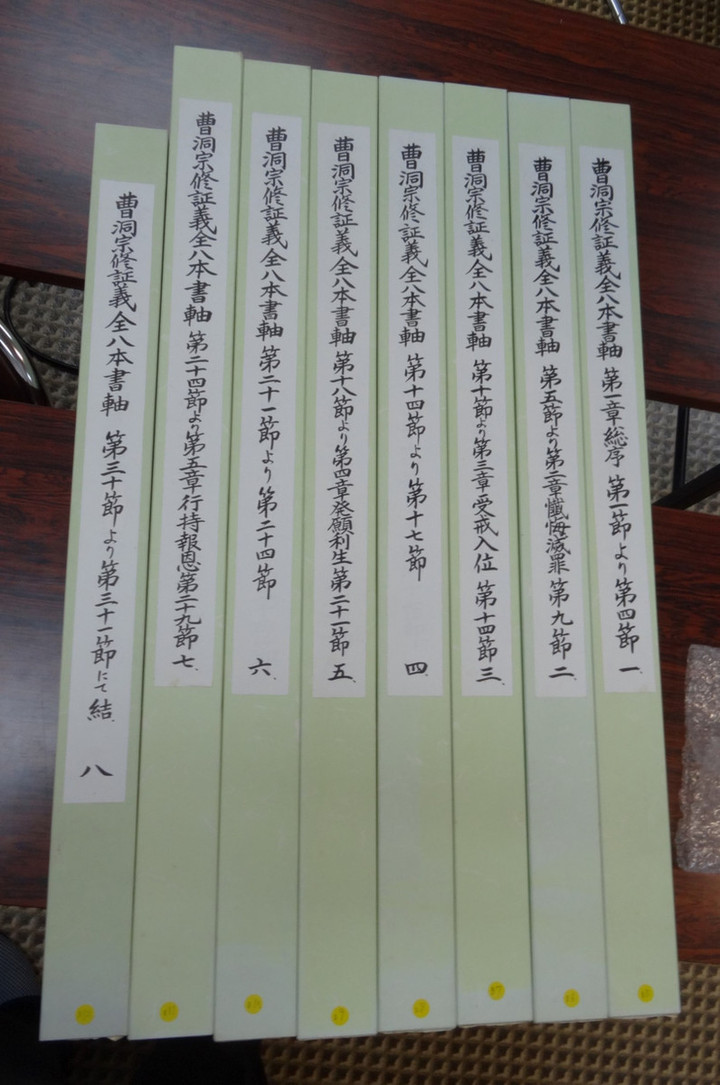 曹洞宗修証義全八本書軸 第一章総序 第一節より第四節 一
曹洞宗修証義全八本書軸 第五節より第二章懺悔滅罪 第九節 二
曹洞宗修証義全八本書軸 第十節より第三章受戒入位 第十四節 三
曹洞宗修証義全八本書軸 第十四節より第十七節 四
曹洞宗修証義全八本書軸 第十八節より第四章発願利生第二十一節 五
曹洞宗修証義全八本書軸 第二十一節より第二十四節 六
曹洞宗修証義全八本書軸 第二十四節より第五章行持報恩第二十九節 七
曹洞宗修証義全八本書軸 第三十節より第三十一節にて結 八